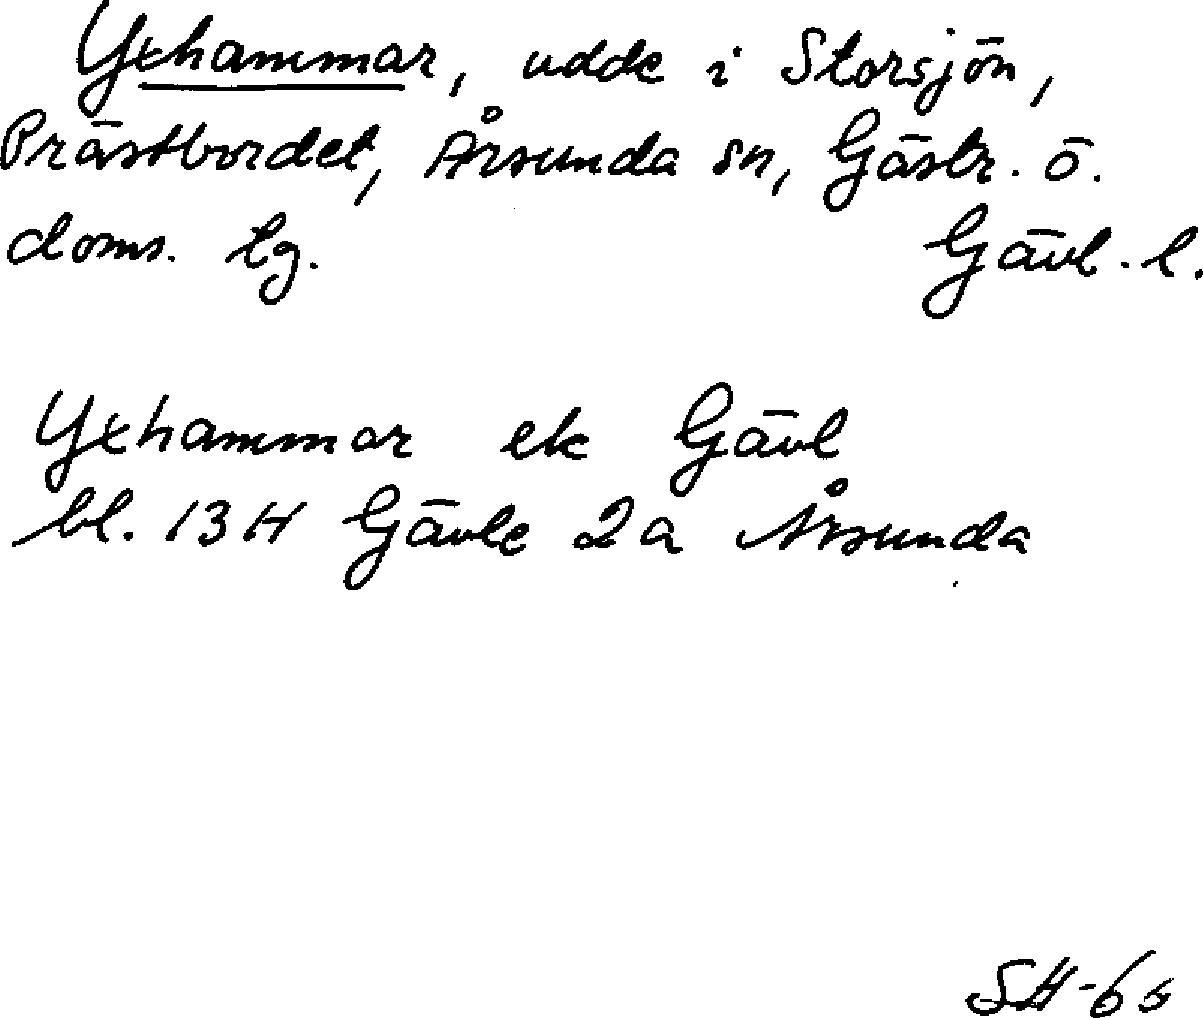 Yxhammar, udde i Storsjön,
Prästbordet, Årsunda sn, Gästr. ö.
doms. tg. Gävl. l.
Yxhammar ek Gävl
bl. 13H Gävle 2a Årsunda